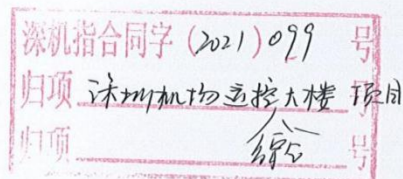 深机指合同字(2021)099号
归项 深圳机场运控大楼 项目
归项 综合 号